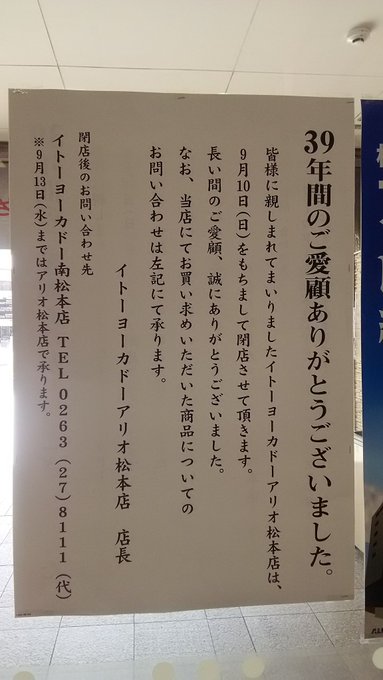 39年間のご愛顧ありがとうございました。
皆様に親しまれてまいりましたイトーヨーカドーアリオ松本店は、
9月10日(日)をもちまして閉店させて頂きます。
長い間のご愛顧、誠にありがとうございました。
なお、当店にてお買い求めいただいた商品についての
お問い合わせは左記にて承ります。
イトーヨーカドーアリオ松本店 店長
閉店後のお問い合わせ先
イトーヨーカドー南松本店 TEL 0263(27)8111(代)
※9月13日(水)まではアリオ松本店で承ります。